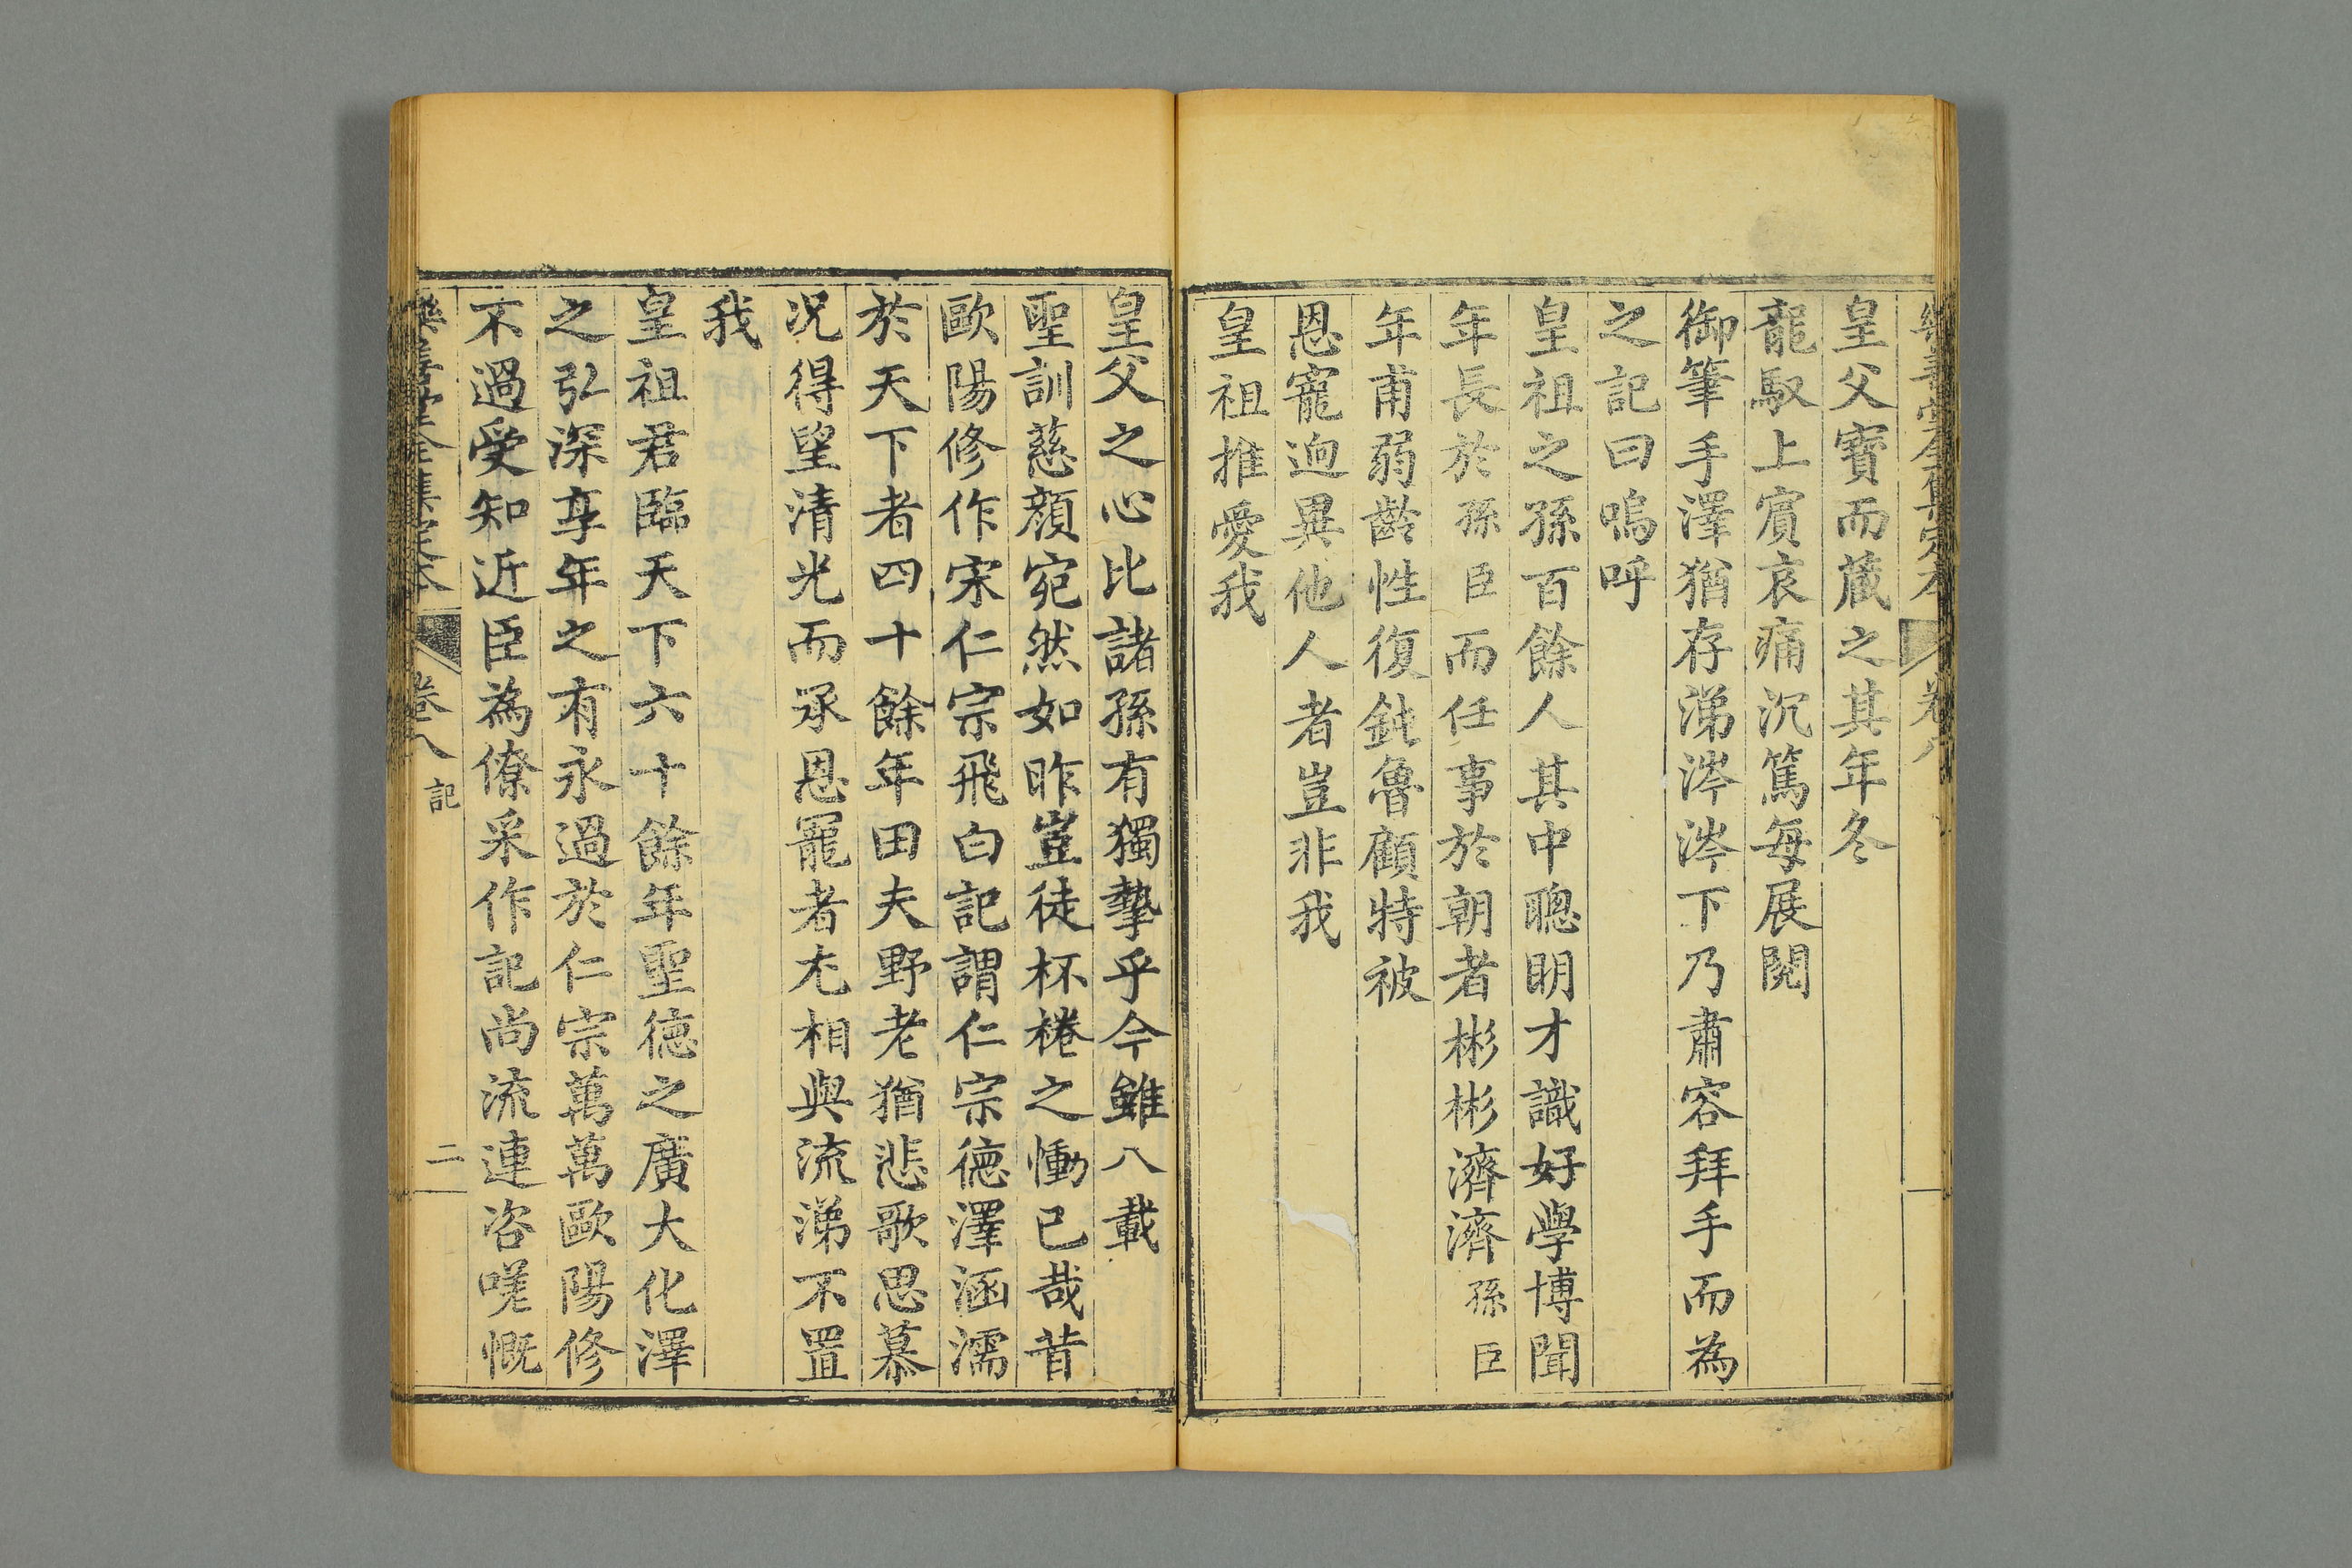 樂善堂全集定本 卷八
皇父寶而蔵之其年冬
龍馭上賓哀痛沉篤每展閱
御筆手澤猶存涕涔涔下乃肅容拜手而為
之記曰嗚呼
皇祖之孫百餘人其中聰明才識好學博聞
年長於孫臣而任事於朝者彬彬濟濟孫臣
年甫弱齡性復鈍魯顧特被
恩寵逈異他人者豈非我
皇祖推愛我
皇父之心比諸孫有獨摯乎今雖八載
聖訓慈顏宛然如昨豈徒杯棬之慟已哉昔
歐陽修作宋仁宗飛白記謂仁宗德澤涵濡
於天下者四十餘年田夫野老猶悲歌思慕
况得望清光而承恩寵者尤相與流涕不置
我
皇祖君臨天下六十餘年聖德之廣大化澤
之弘深享年之有永過於仁宗萬萬歐陽修
不過受知近臣為僚采作記尚流連咨嗟慨
樂善堂全集定本 卷八 記 二